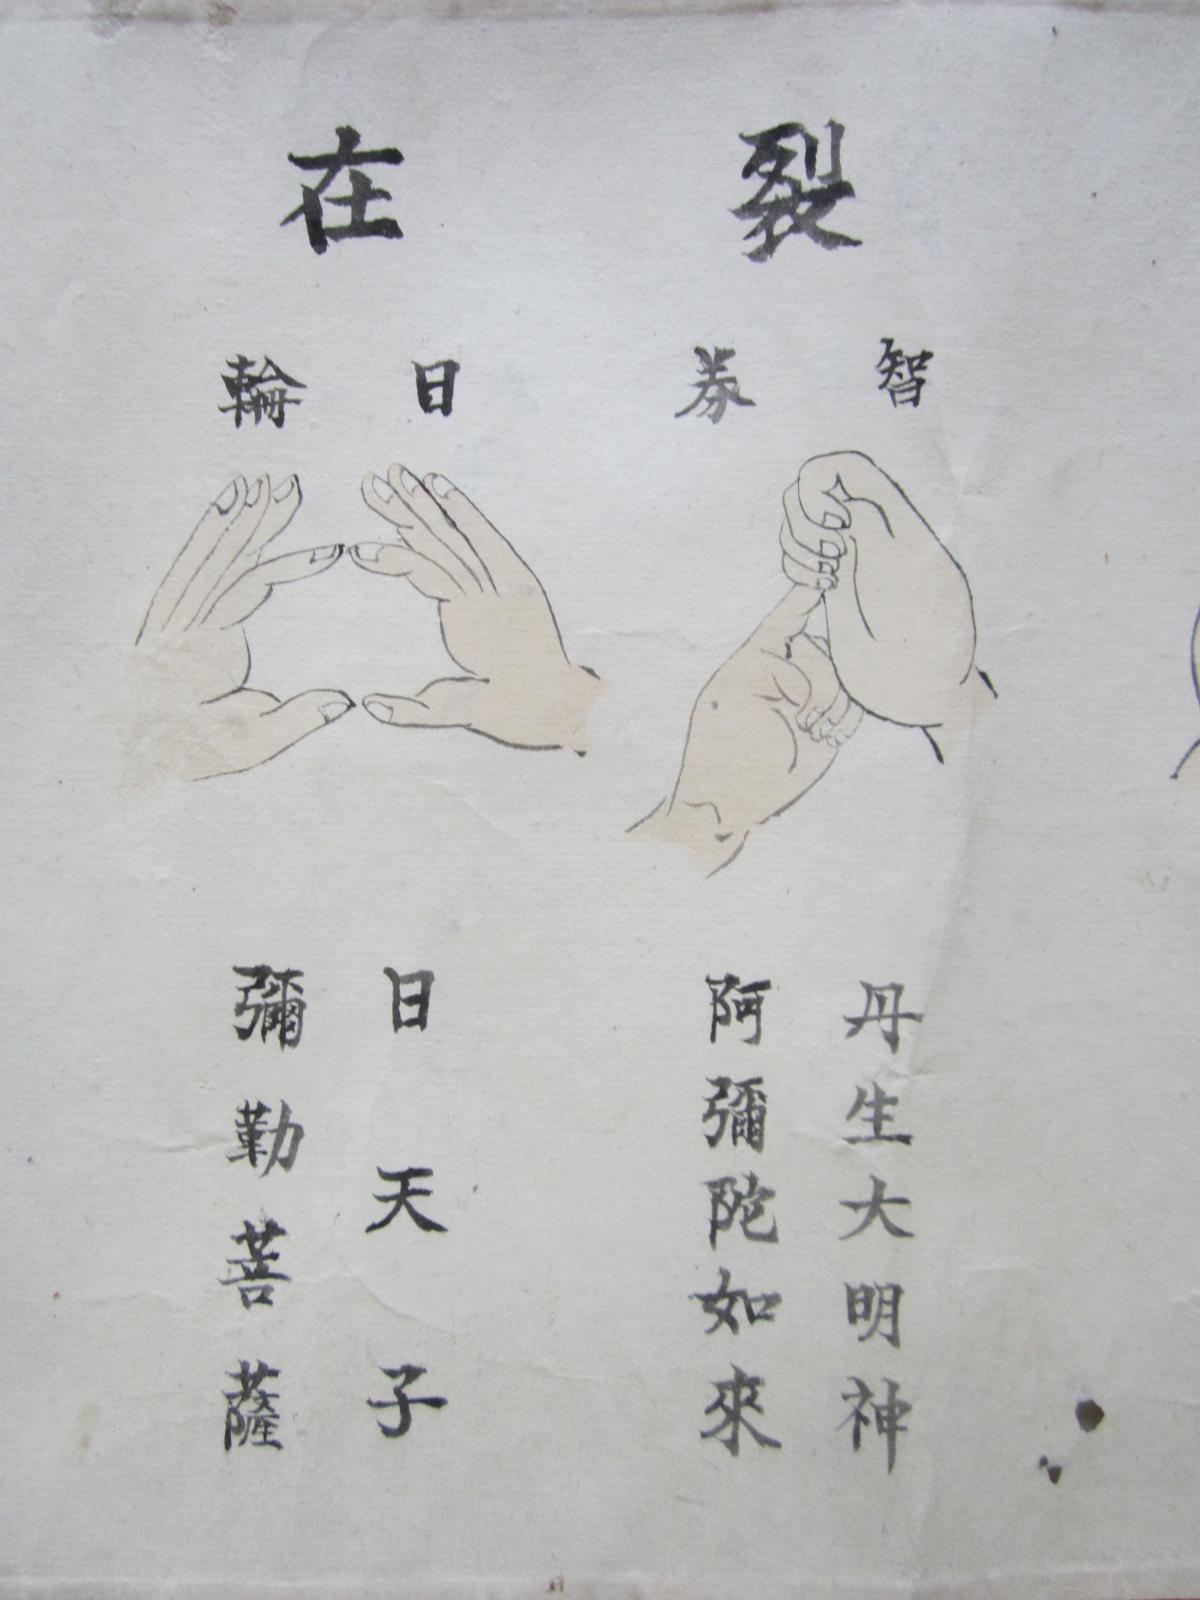 裂
智
券
丹生大明神
阿彌陀如來
在
日
輪
日天子
彌勒菩薩